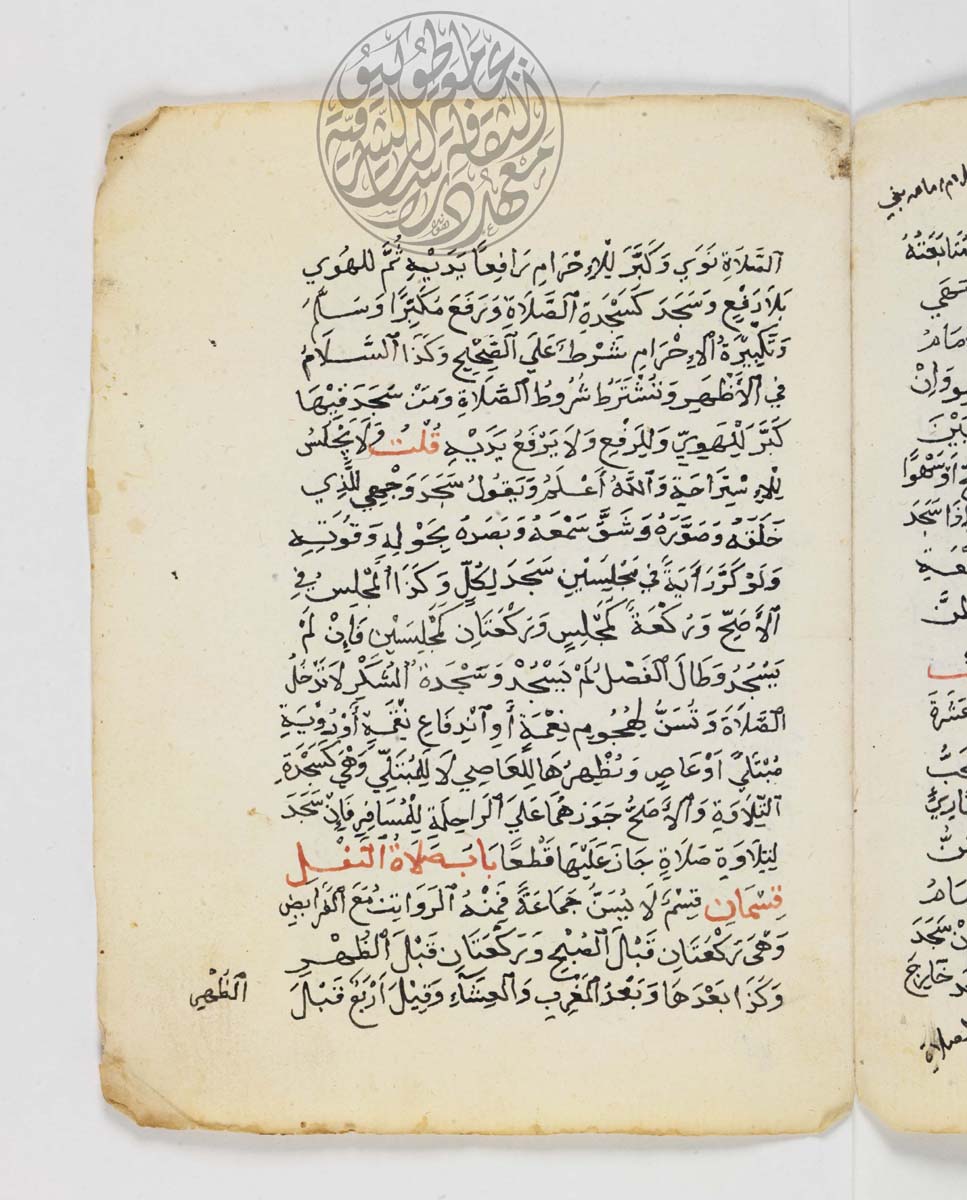 جامعة طوكيو
معهد دراسات الثقافة الشرقية
الصَّلَاةِ نَوَي وَكَبَّرَ لِلْإِحْرَامِ رَافِعًا يَدَيْهِ ثُمَّ لِلهَوِي
بِلَا رَفْعٍ وَسَجَدَ كَسَجْدَةِ الصَّلَاةِ وَرَفَعَ مُكَبِّرًا وَسَلَّمَ
وَتَكْبِيْرَةُ الْإِحْرَامِ شَرْطٌ عَلَي الصَّحِيْحِ وَكَذَا السَّلَامُ
فِي الْأَظْهَرِ وَتُشْتَرَطُ شُرُوطُ الصَّلَاةِ وَمَنْ سَجَدَ فِيْهَا
كَبَّرَ لِلْهَوِيِّ وَلِلرَفْعِ وَلَا يَرْفَعُ يَدَيْهِ قُلْتُ وَلَا يَجْلِسُ
لِلْإِسْتِرَاحَةِ وَاللَّهُ أَعْلَمُ وَيَقُولُ سَجَدَ وَجْهِي لِلَّذِي
خَلَقَهُ وَصَوَّرَهُ وَشَقَّ سَمْعَهُ وَبَصَرَهُ بِحَوْلِهِ وَقُوَّتِهِ
وَلَوْ كَرَّرَ أٓيَةً فِي مَجْلِسَيْنِ سَجَدَ لِكُلٍّ وَكَذَا الْمَجْلِسُ فِي
الْأَصَحِّ وَرَكْعَةٌ كَمَجْلِسٍ وَرَكْعَتَانِ كَمَجْلِسَيْنِ فَإِنْ لَمْ
يَسْجُدْ وَطَالَ الْفَصْلُ لَمْ يَسْجُدْ وَسَجْدَةُ الشُّكْرِ لَا تَدْخُلُ
الصَّلَاةَ وَتُسَنُّ لِهُجُومِ نِعْمَةٍ أَوِ انْدِفَاعِ نِقْمَةٍ أَوْ رُؤْيَةِ
مُبْتَلًي أَوْ عَاصٍ وَيُظْهِرُهَا لِلْعَاصِي لَا لِلْمُبْتَلِّي وَهْيَ كَسَجْدَةِ
التِّلَاوَةِ وَالْأَصَحُّ جَوَزهُمَا عَلَي الرَاحِلَةِ لِلْمُسَافِرِ فَإِنْ سَجَدَ
لِتِلَاوَةِ صَلَاةٍ جَازَ عَلَيْهَا قَطْعًا بَابُ صَلَاةُ النَفْلِ
قِسْمَانِ قِسْمٌ لَا يُسَنُّ جَمَاعَةً فَمِنْهُ الرَوَاتِبُ مَعَ الْفَرَايِضِ
وَهْيَ رَكْعَتَانِ قَبْلَ الصُّبْحِ وَرَكْعَتَانِ قَبْلَ الظُّهْرِ
وَكَذَا بَعْدَهَا وَبَعْدَ الْمَغْرِبِ وَالْعِشَآءِ وَقِيْلَ أَرْبَعٌ قَبْلَ
الظُّهْرِ